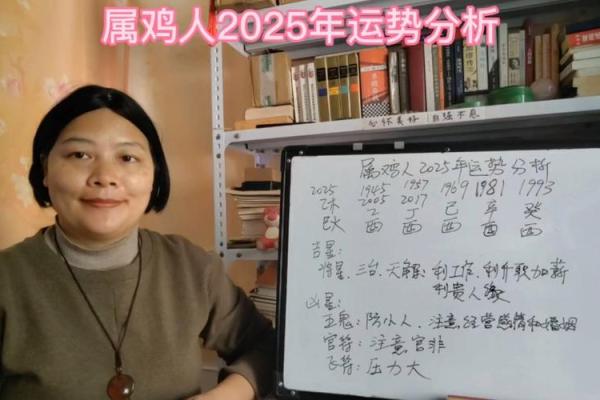 属鸡人2025年运势分析
心怀美好 自强不息
属鸡人2025年运势分析
2025 1945 1957 1969 1981 1993
乙木 2005 2017
巳火 乙 丁 己 辛 癸
酉 酉 酉 酉 酉
吉星:
将星、三台、天解:利工作、利升职加薪
利贵人缘
凶星:
五鬼:防小人、注意经营感情和婚姻
官符:注意官非
飞符:压力大